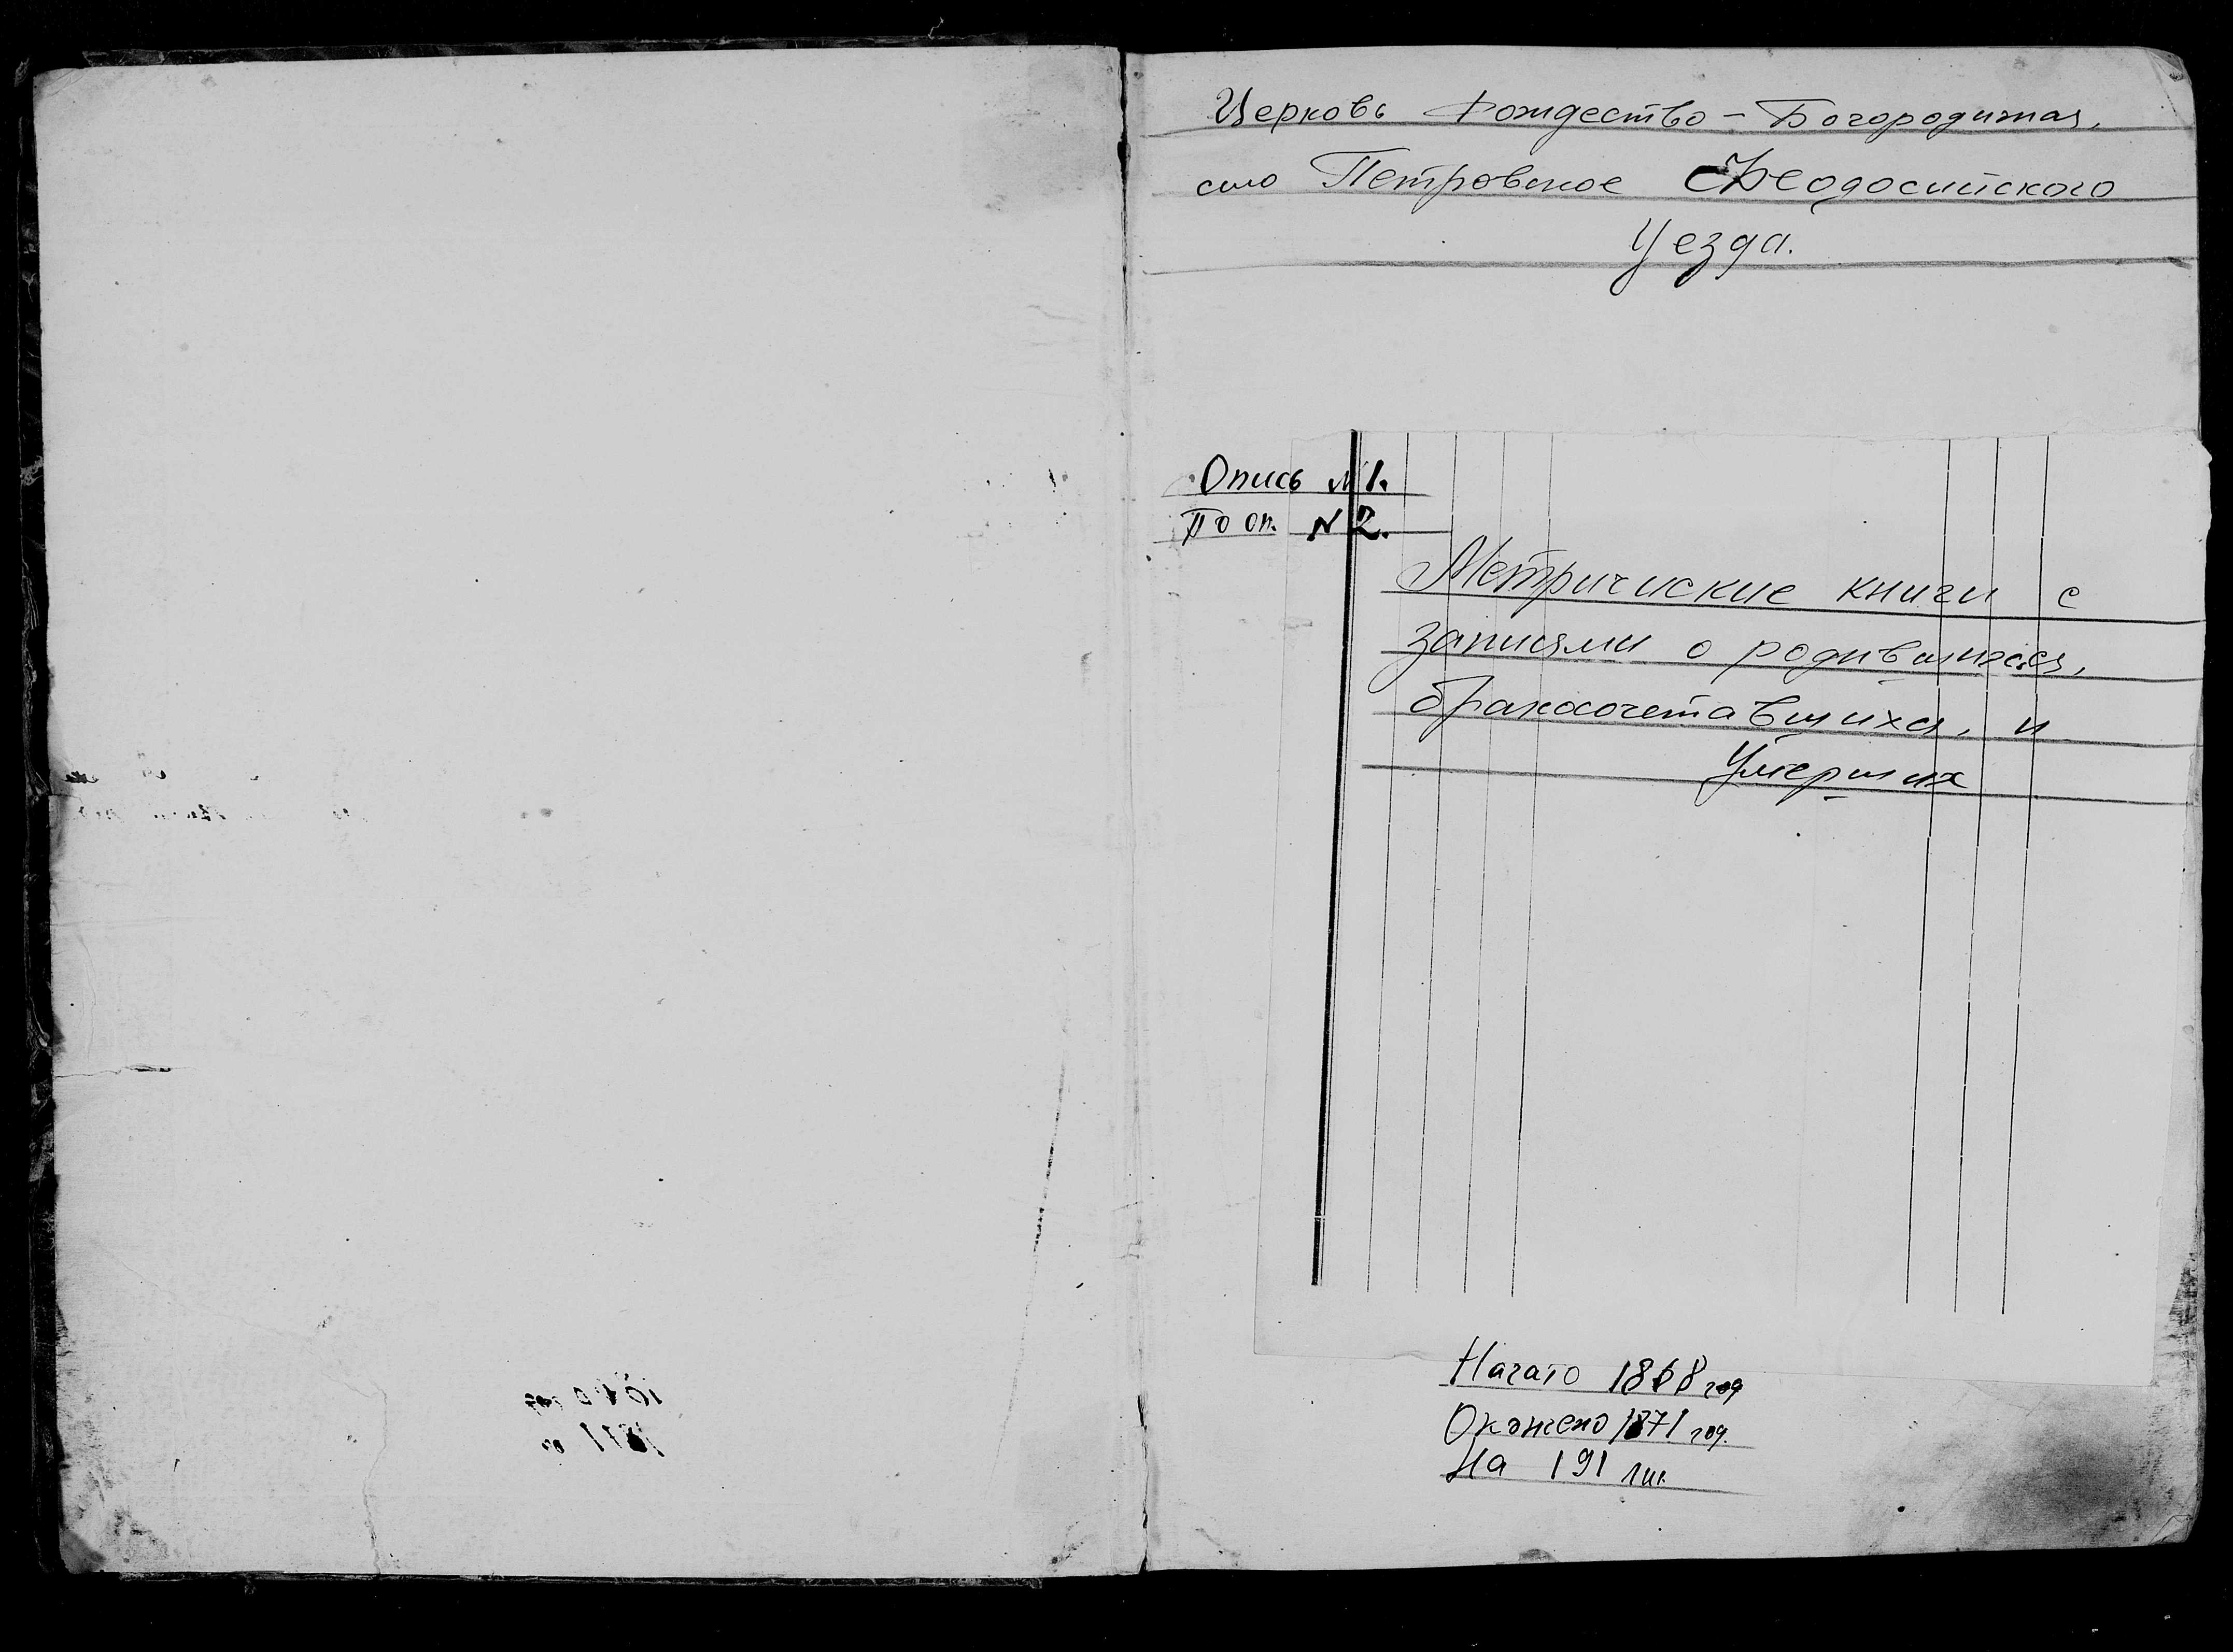 Церковь Рождество - Богородичная,
село Петровское Феодосийского
Уезда.
Опись №1.
По оп. N 2.
Метрические книги с
записями о родившихся,
бракосочетавшихся, и
Умерших
Начато 1868 год
Окончено 1871 год.
На 191 лис.